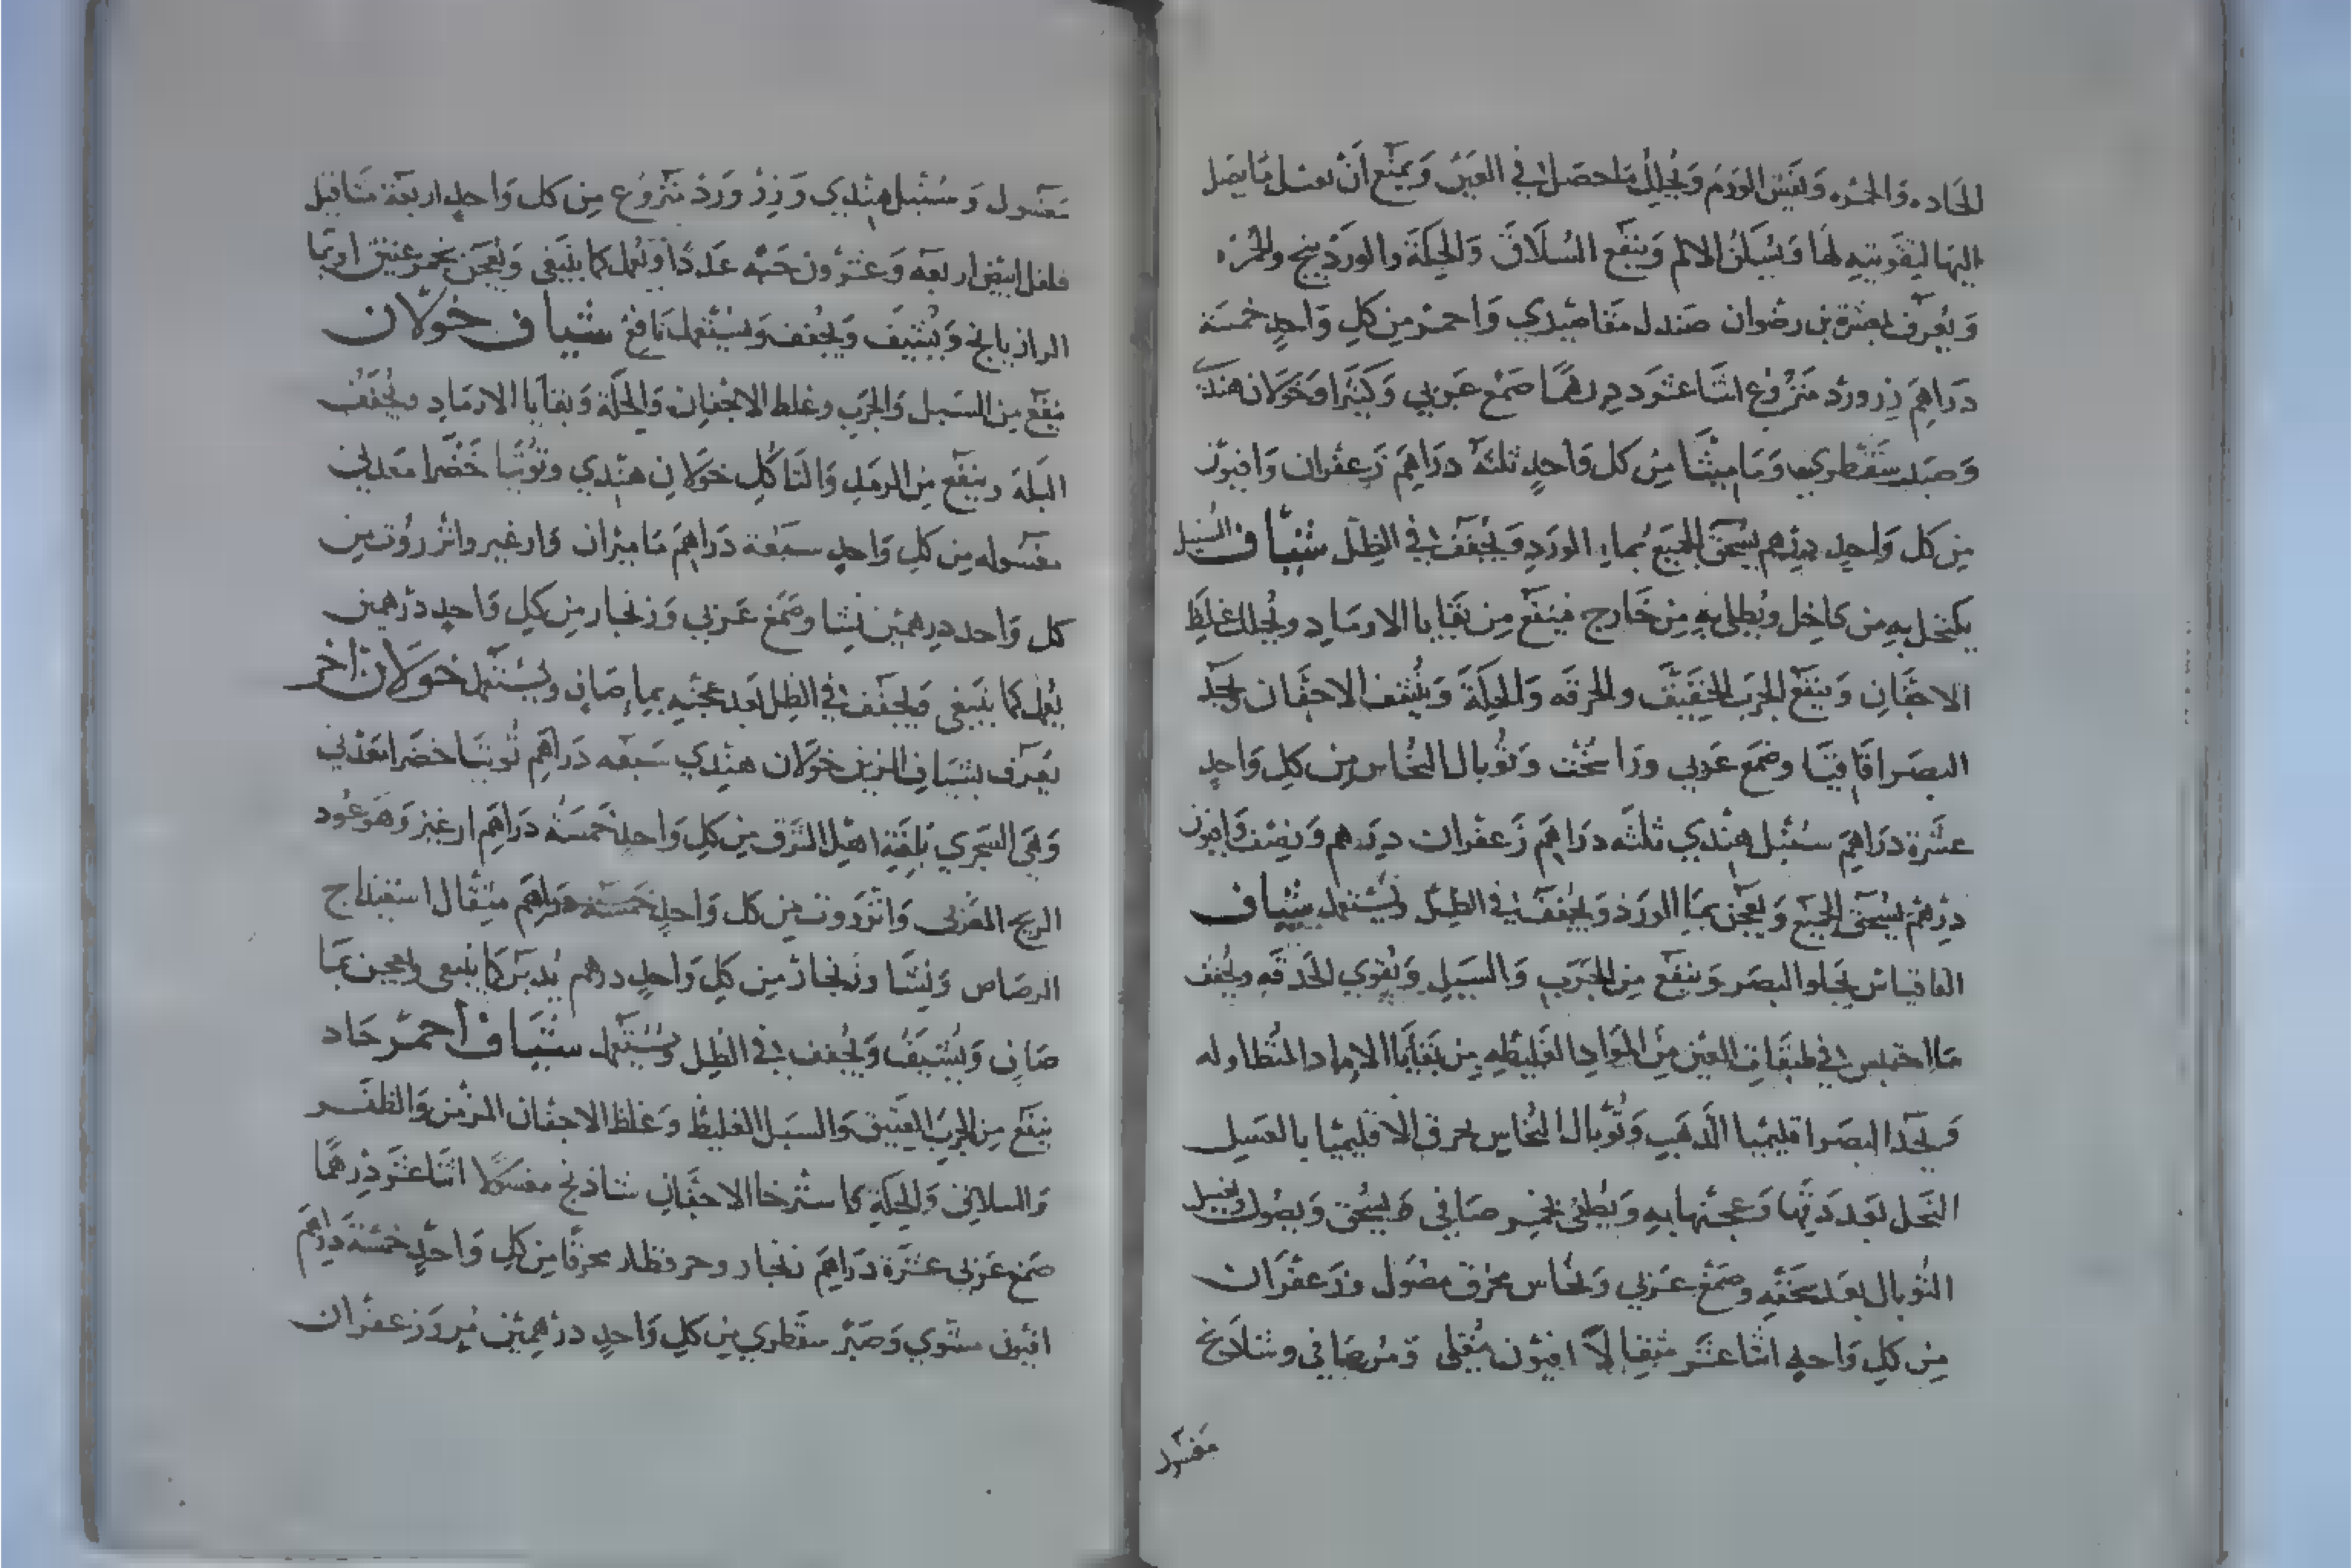 الحاده والحمره ويفش الورم ويحلل ما حصل في العين ويمنع ان تقبل ما يصل
اليها لتقويته لها ويسكن الالم وينفع السلاق والحكة والوردينج والحمره
ويعرف بعشرة بن رضوان صندل مقاصيدي واحمر من كل واحد خمسة
دراهم زر ورد منزوع اثنا عشر درهما صمغ عربي وكثيرا وخولان هندي
وصبر سقطري وماميثا من كل واحد ثلثه دراهم زعفران وافيون
من كل واحد درهم يسحق الجميع بماء الورد ويجفف في الظل شياف السنبل
يكتحل به من داخل ويطلى به من خارج فينفع من بقايا الارماد ويحلل غلظ
الاجفان وينفع الجرب الخفيف والحرقه والحكة وينشف الاجفان ويحد
البصر اقاقيا وصمغ عربي وراسخت وتوبال النحاس من كل واحد
عشرة دراهم سنبل هندي ثلثه دراهم زعفران درهم ونصف وافيون
درهم يسحق الجميع ويعجن بماء الورد ويجفف في الظل ويستعمل شياف
الفاقياس يجلو البصر وينفع من الجرب والسبل ويقوي الحدقه ويجفف
ما احتبس في طبقات العين من المواد الغليظه من بقايا الارماد المتطاوله
ويحد البصر اقليميا الذهب وتوبال النحاس يحرق الاقليميا بالعسل
النحل بعد دقها وعجنها به ويطفى بخمر صافي ويسحق ويصول ويغسل
التوبال بعد سحقه وصمغ عربي ونحاس محرق مصول وزعفران
من كل واحد اثنا عشر مثقالا افيون مقلى ومر صافى وشاذنج
مغسول
مغسول وسنبل هندي وزر ورد منزوع من كل واحد اربعة مثاقيل
فلفل ابيض اربعه وعشرون حبه عددا ويعمل كما ينبغي ويعجن بخمر عتيق او بما
الرازيانج ويشيف ويجفف ويستعمل نافع شياف خولان
ينفع من السبل والجرب وغلظ الاجفان والحكة وبقايا الارماد ويجفف
البلة وينفع من الرمد والتاكل خولان هندي وتوتيا خضرا معدني
مغسوله من كل واحد سبعة دراهم ماميران وارغيس وانزروت من
كل واحد درهمين نشا وصمغ عربي وزنجار من كل واحد درهمين
يعمل كما ينبغي ويجفف في الظل بعد عجنه بماء صاف ويستعمل خولان اخر
يعرف بشياف الزين خولان هندي سبعه دراهم توتيا خضرا معدني
وهي الشجري بلغة اهل الشرق من كل واحد خمسة دراهم ارغيز وهو عود
الريح المغربي وانزروت من كل واحد خمسة دراهم مثقال اسفيداج
الرصاص ونشا وزنجار من كل واحد درهم يدبر كما ينبغي ويعجن بما
صاف ويشيف ويجفف في الظل ويستعمل شياف احمر حاد
ينفع من الجرب العتيق والسبل الغليظ وغلظ الاجفان المزمن والظفر
والسلاق والحكة واسترخا الاجفان شاذنج مغسولا اثنا عشر درهما
صمغ عربي عشرة دراهم زنجار وقلقطار محرقا من كل واحد خمسة دراهم
افيون مشوي وصبر سقطري من كل واحد درهمين مر وزعفران